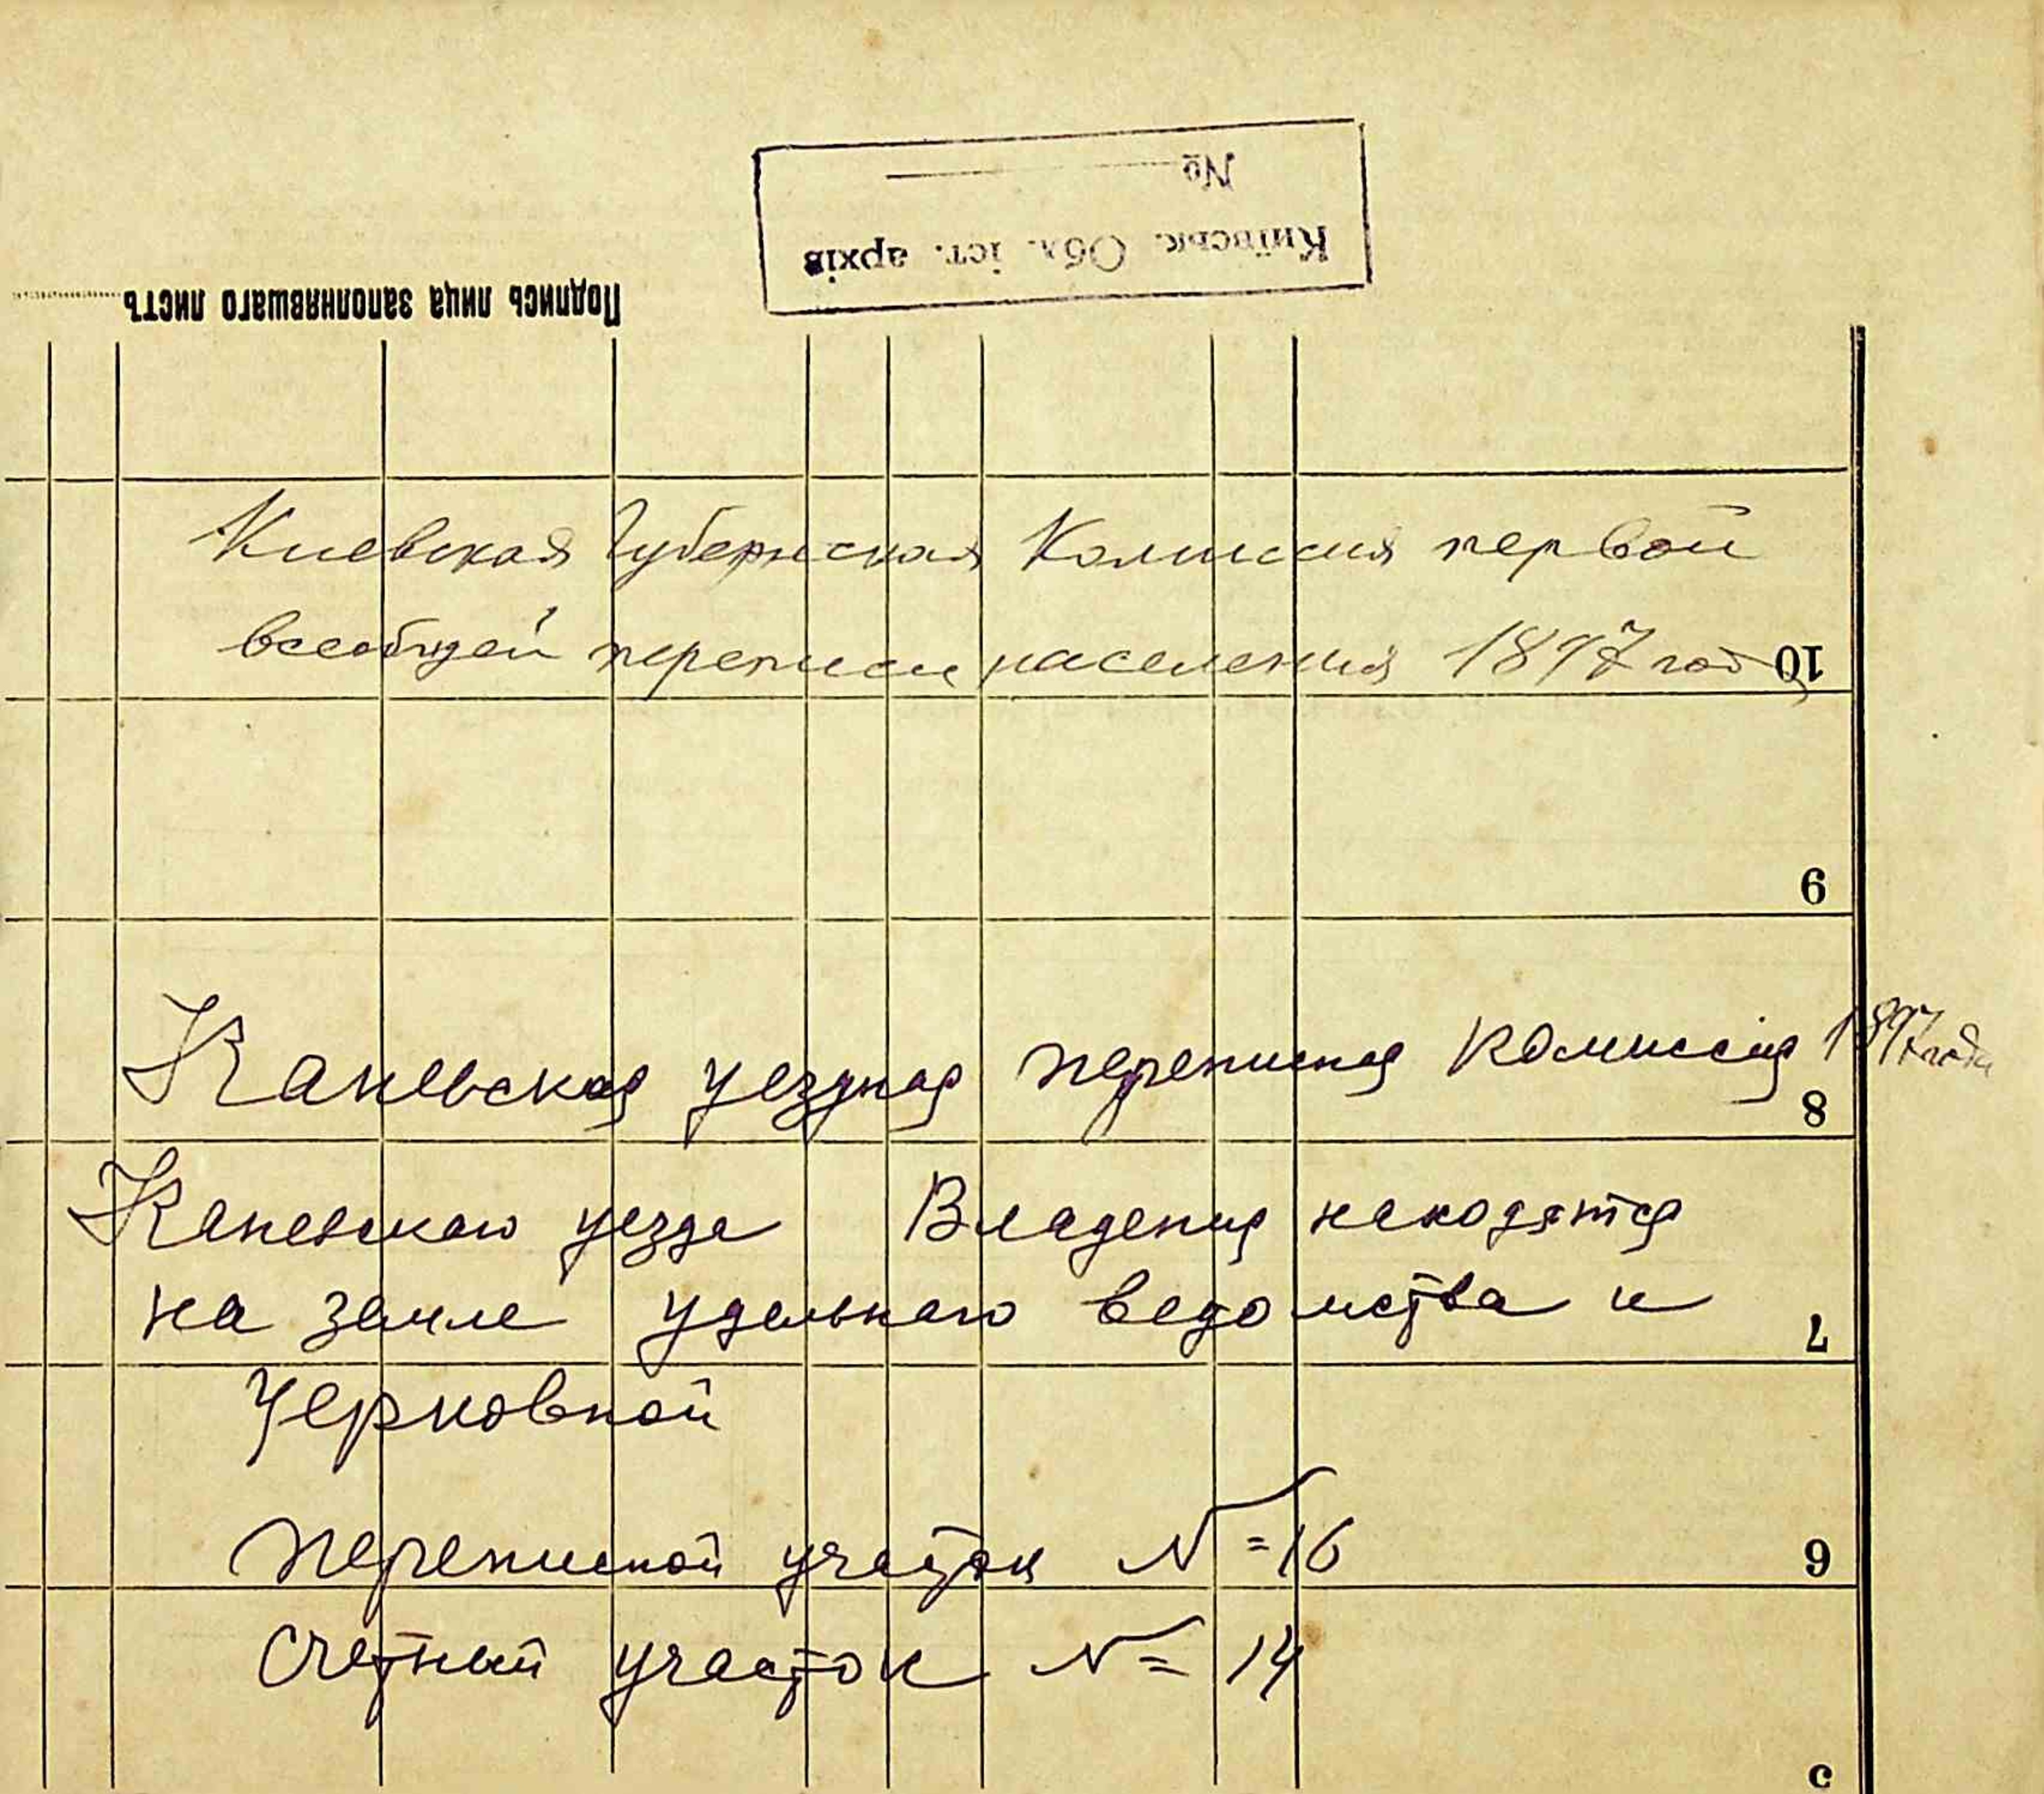 №
Київськ. Обл. іст. архів
Подпись лица заполнявшаго листъ
Киевская Губернская Комиссия первой
всеобщей переписи населения 1897 года
10
9
Каневская уездная переписная Комиссия 1897 года
8
Каневского уезда Владения находятся
на земле удельного ведомства и
7
Церковной
Переписной участок N=16
6
Счетный участок N= 14
5